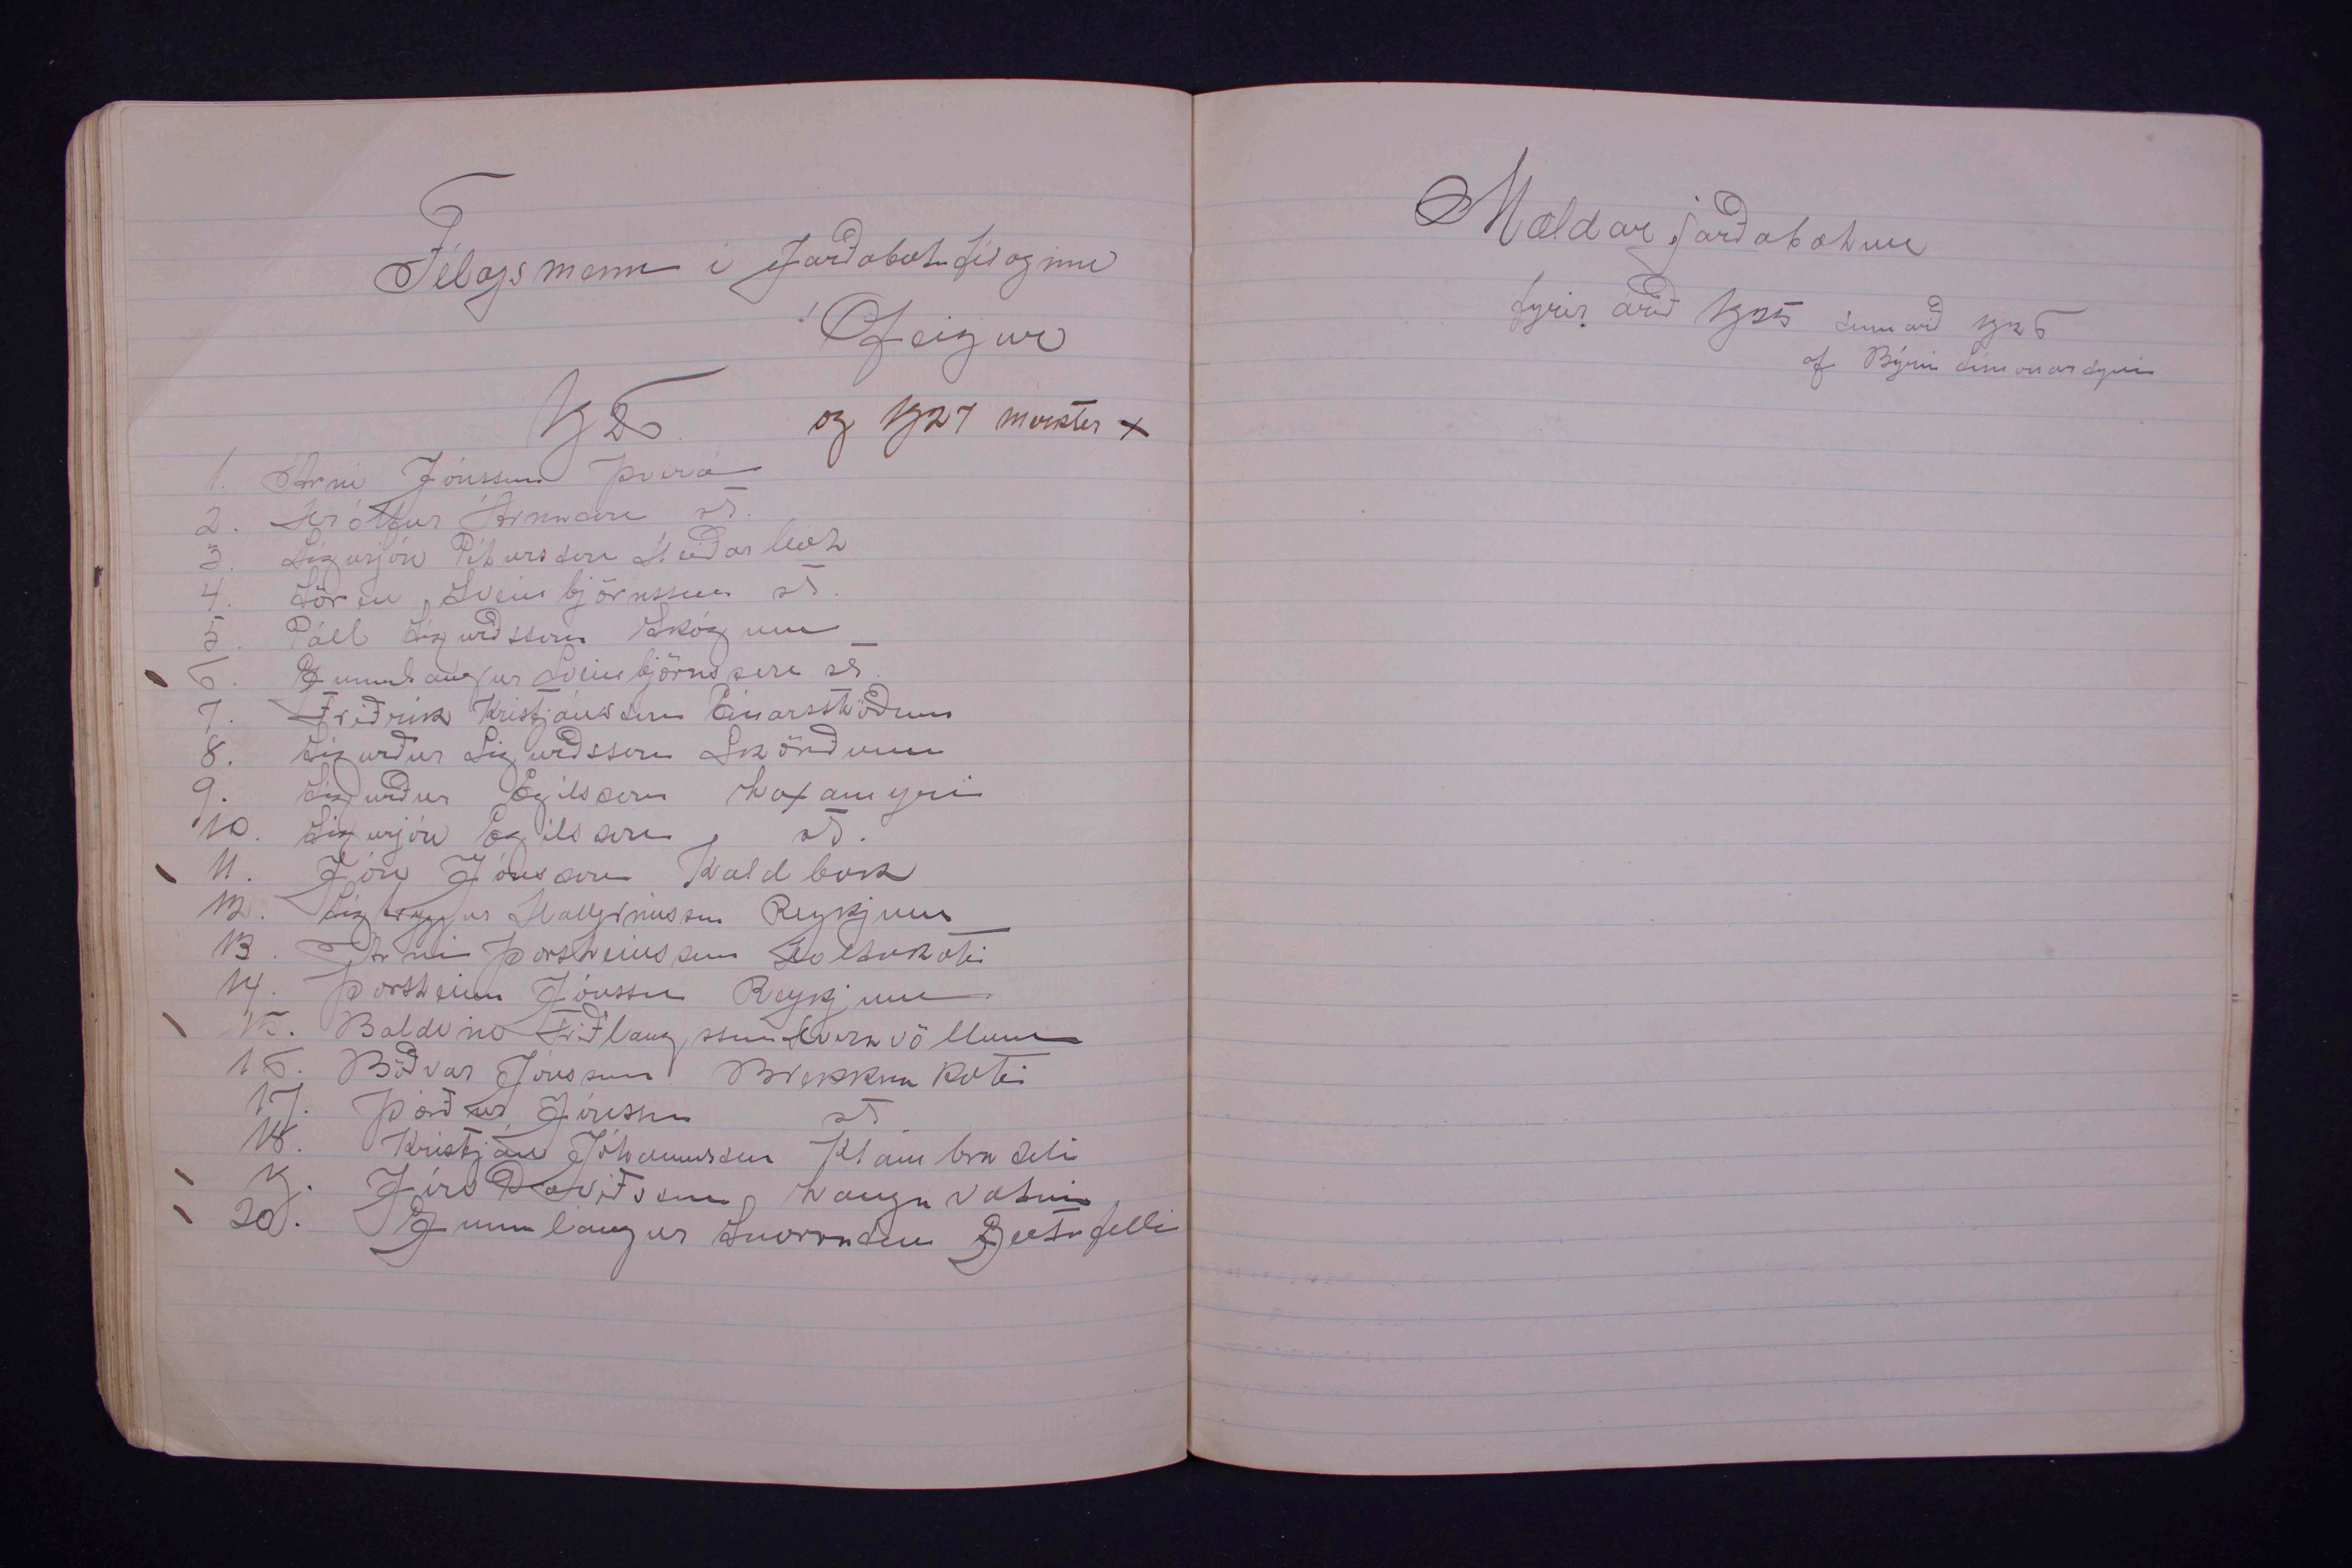 Félagsmenn i Jarðabótafélaginu
Ofeigur
1926 og 1927 merkter x
1. Árni Jónsson Þverá
2. Hrólfur Árnason st.
3. Sigurjón Pétursson Heiðarbót
4. Sören Sveinbjörnsson st.
5. Páll Sigurðsson Skógum
6. Gunnlaugur Sveinbjörnsson st.
7. Friðrik Kristjánsson Einarsstöðum
8. Sigurður Sigurðsson Skörðum
9. Sigurður Egilsson Laxamyri
10. Sigurjón Egilsson st.
11. Jón Jónsson Kaldbak
12. Sigtryggur Hallgrimsson Reykjum
13. Árni Þorsteinsson Holtakoti
14. Þorsteinn Jónsson Reykjum
15. Baldvin Friðlaugsson Hveravöllum
16. Böðvar Jónsson Brekknakoti
17. Þórður Jónsson st
18. Kristján Jóhannesson Klambraseli
19. Jón Daviðsson Langavatni
20. Gunnlaugur Snorrason Geitafelli
Mældar jarðabætur
fyrir árið 1925 sumarið 1926
af Birni Símonarsyni